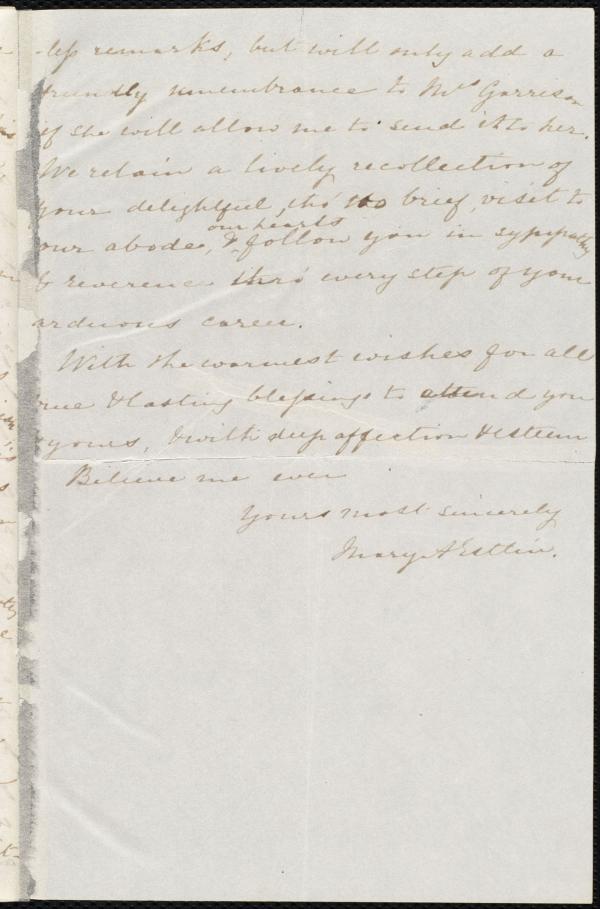 -less remarks, but will only add a
friendly remembrance to Mrs Garrison
if she will allow me to send it to her.
We retain a lively recollection of
your delightful, tho' too brief, visit to
our abode, & our hearts follow you in sympathy
& reverence thro' every step of your
arduous career.
With the warmest wishes for all
true & lasting blessings to attend you
& yours, & with deep affection & esteem
Believe me ever
Yours most sincerely
Mary A Estlin.